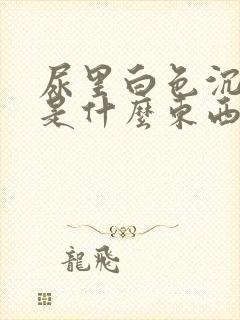 尿里白色沉
是什麼東西
龍飛